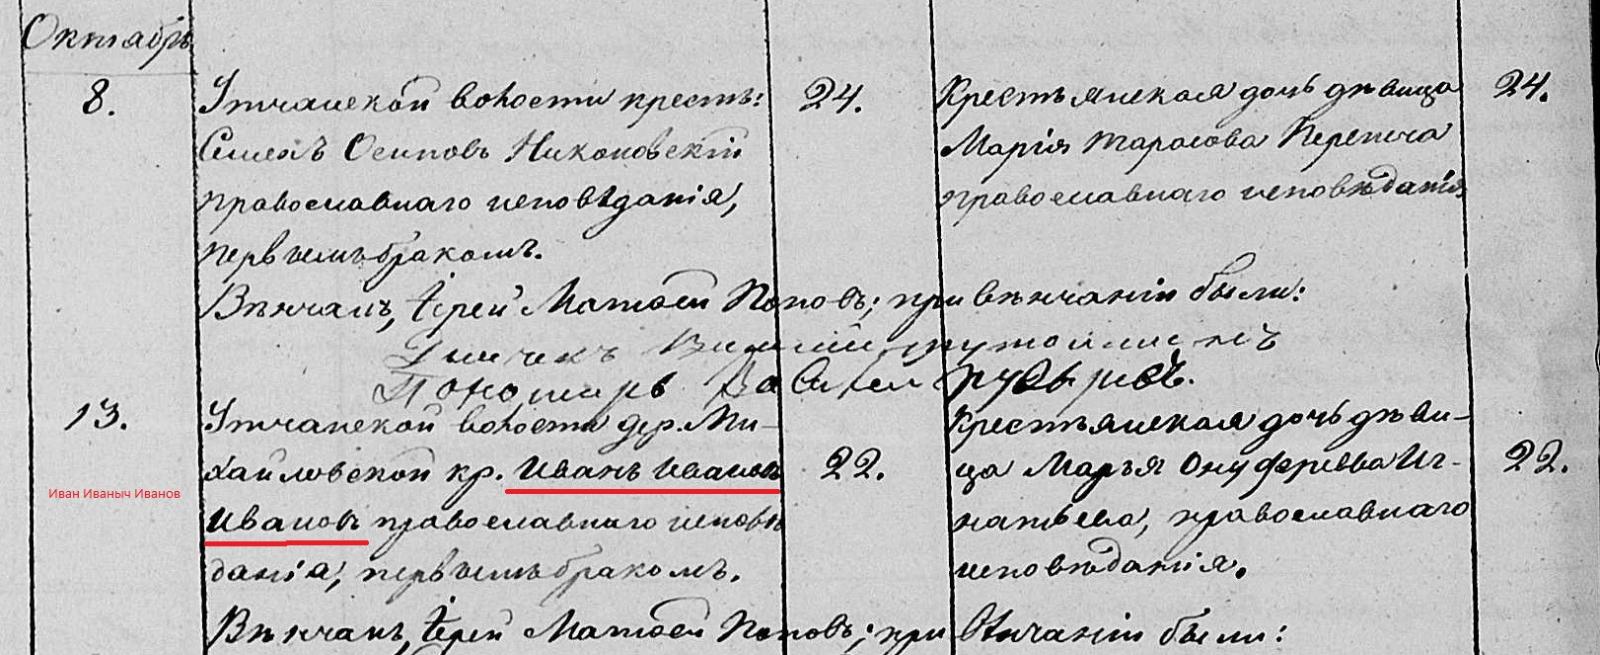 Октябрь
8. Утчанской волости крестъ: 24. Крестьянская дочь дѣвица 24.
Семенъ Осиповъ Никоновскій Марія Тарасова Перепеча
православнаго исповѣданія, православнаго исповѣданія,
первымъ бракомъ.
Вѣнчалъ, іерей Матѳей Поповъ; при вѣнчаніи были:
Пономарь
13. Утчанской волости дер. Ми- 22. Крестьянская дочь дѣви- 22.
хайловской кр. Иванъ Ивановъ ца Марья Онуфреева Иг-
Иван Иваныч Иванов
Ивановъ православнаго исповѣ натьева, православнаго
данія, первымъ бракомъ. исповѣданія.
Вѣнчалъ, іерей Матѳей Поповъ; при вѣнчаніи были: